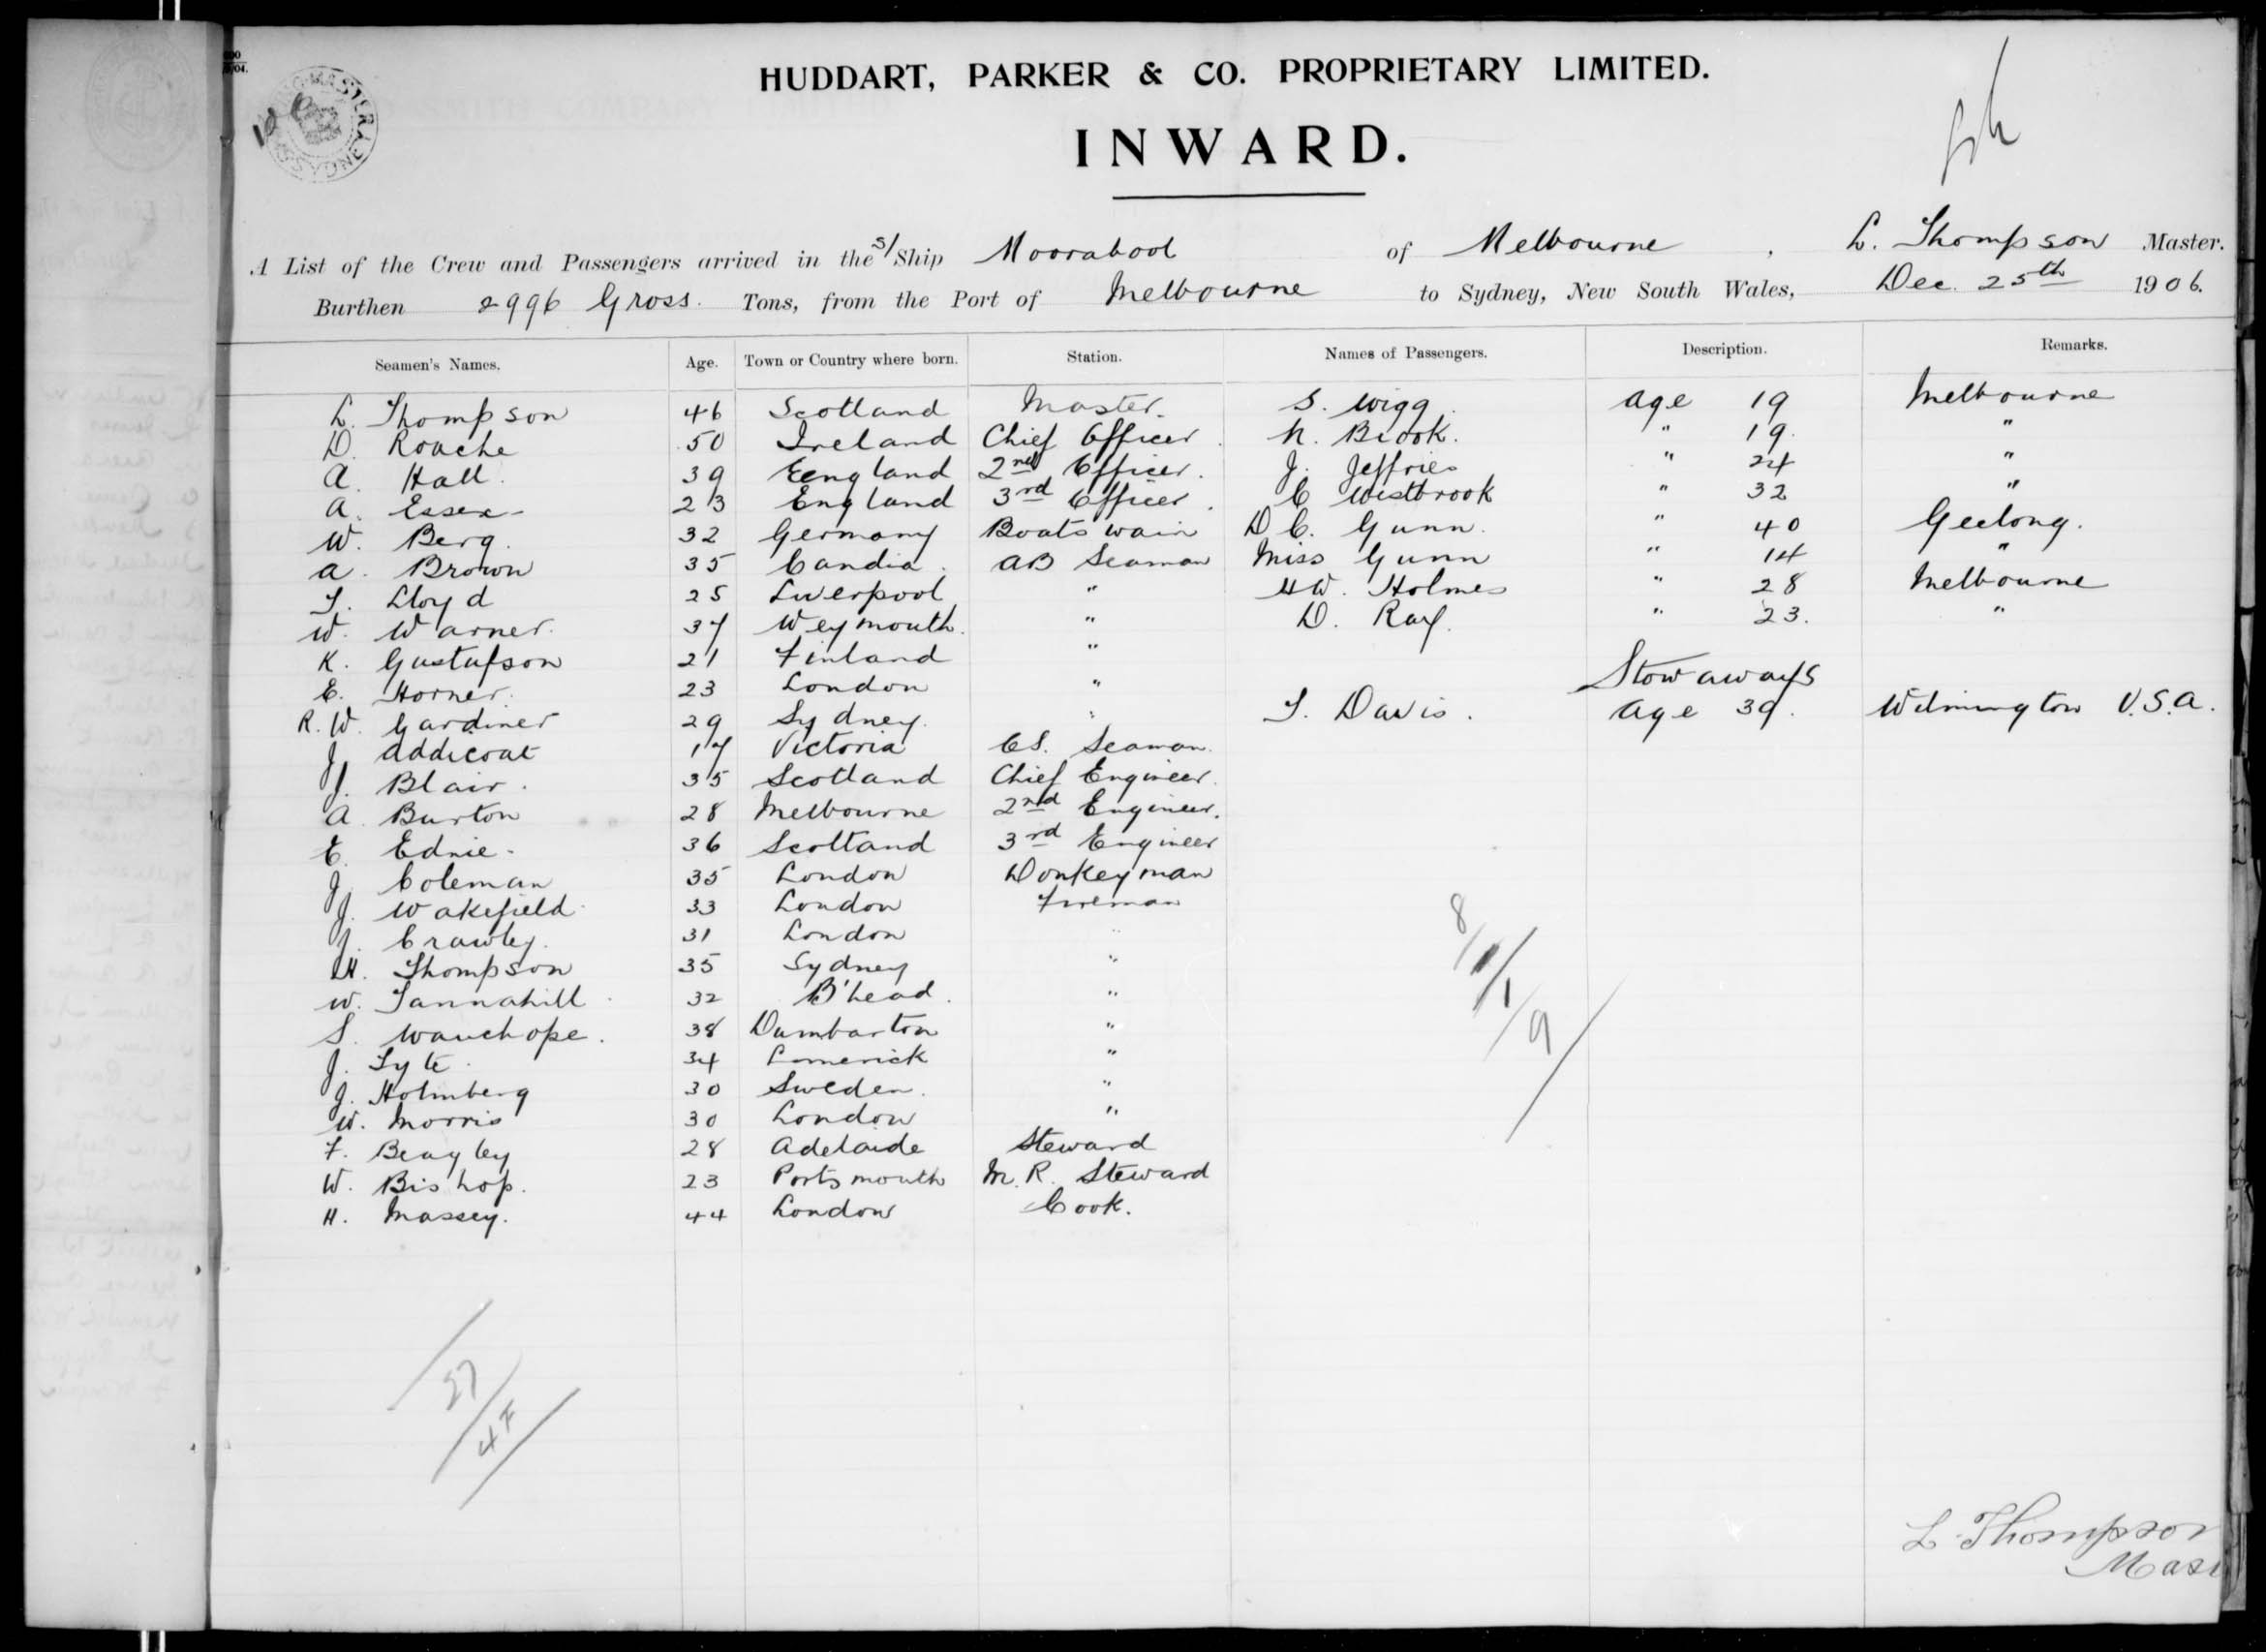 HUDDART, PARKER & CO. PROPRIETARY LIMITED.
INWARD.
A List of the Crew and Passengers arrived in the S/Ship Moorabool of Melbourne, L. Thompson Master.
Burthen 2996 Gross. Tons, from the Port of Melbourne to Sydney, New South Wales, Dec. 25th 1906.
Seamen's Names. Age. Town or Country where born. Station. Names of Passengers. Description. Remarks.
L. Thompson 46 Scotland Master. S. Wigg. age 19 Melbourne
D. Roache 50 Ireland Chief Officer. N. Brook. " 19. "
A. Hall. 39 Eengland 2nd Officer. J. Jeffries " 24 "
A. Essex 23 England 3rd Officer. C Westbrook " 32 "
W. Berg. 32 Germany Boatswain D C. Gunn. " 40 Geelong.
A. Brown 35 Candia. AB Seaman Miss Gunn " 14 "
T. Lloyd 25 Liverpool " HW. Holmes " 28 Melbourne
W. Warner. 37 Weymouth. " D. Ray. " 23. "
K. Gustafson 21 Finland "
E. Horner. 23 London " Stowaways
R. W. Gardiner 29 Sydney. " T. Davis. age 39. Wilmington U.S.A.
J. Addicoat 17 Victoria OS. Seaman.
J. Blair. 35 Scotland Chief Engineer.
A. Burton 28 Melbourne 2nd Engineer.
E. Ednie. 36 Scotland 3rd Engineer
J. Coleman 35 London Donkeyman
J. Wakefield 33 London Fireman
J. Crawley. 31 London "
H. Thompson 35 Sydney "
W. Tannahill 32 B'head. "
S. Wauchope. 38 Dumbarton "
J. Tyte. 34 Limerick "
J. Holmberg 30 Sweden. "
W. Morris 30 London "
F. Beagley 28 Adelaide Steward
W. Bishop. 23 Portsmouth M. R. Steward
H. Massey. 44 London Cook.
8/1/1/9
27/4F
L. Thompson